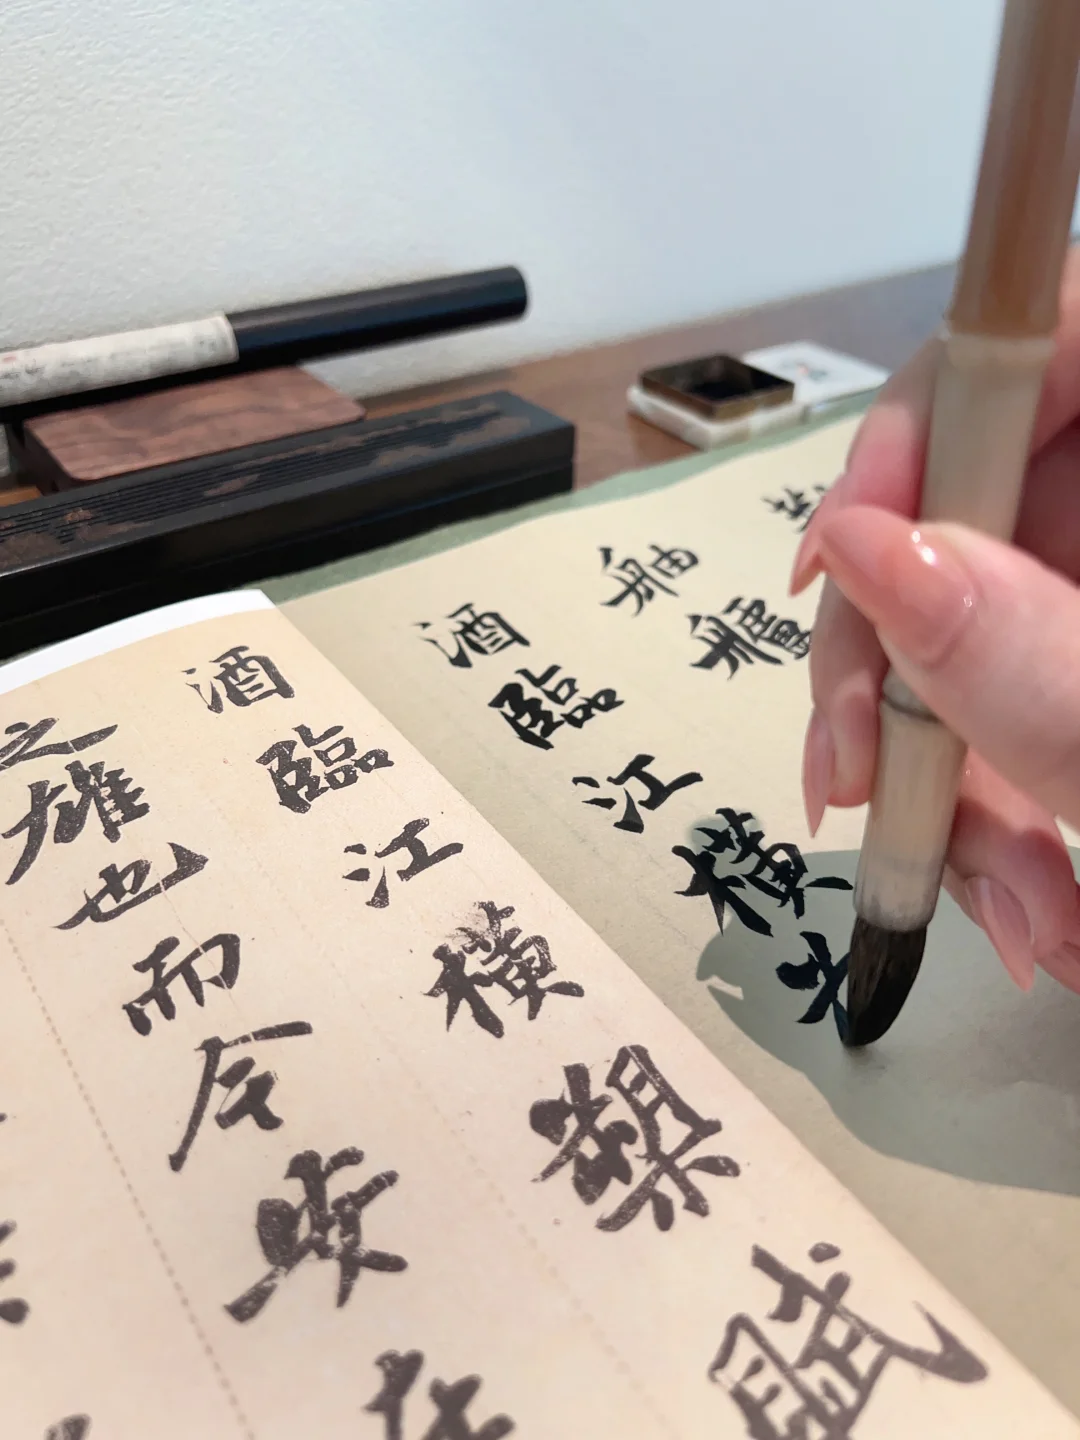 舳艫
酒臨江橫
酒臨江橫槊賦
之雄也而今